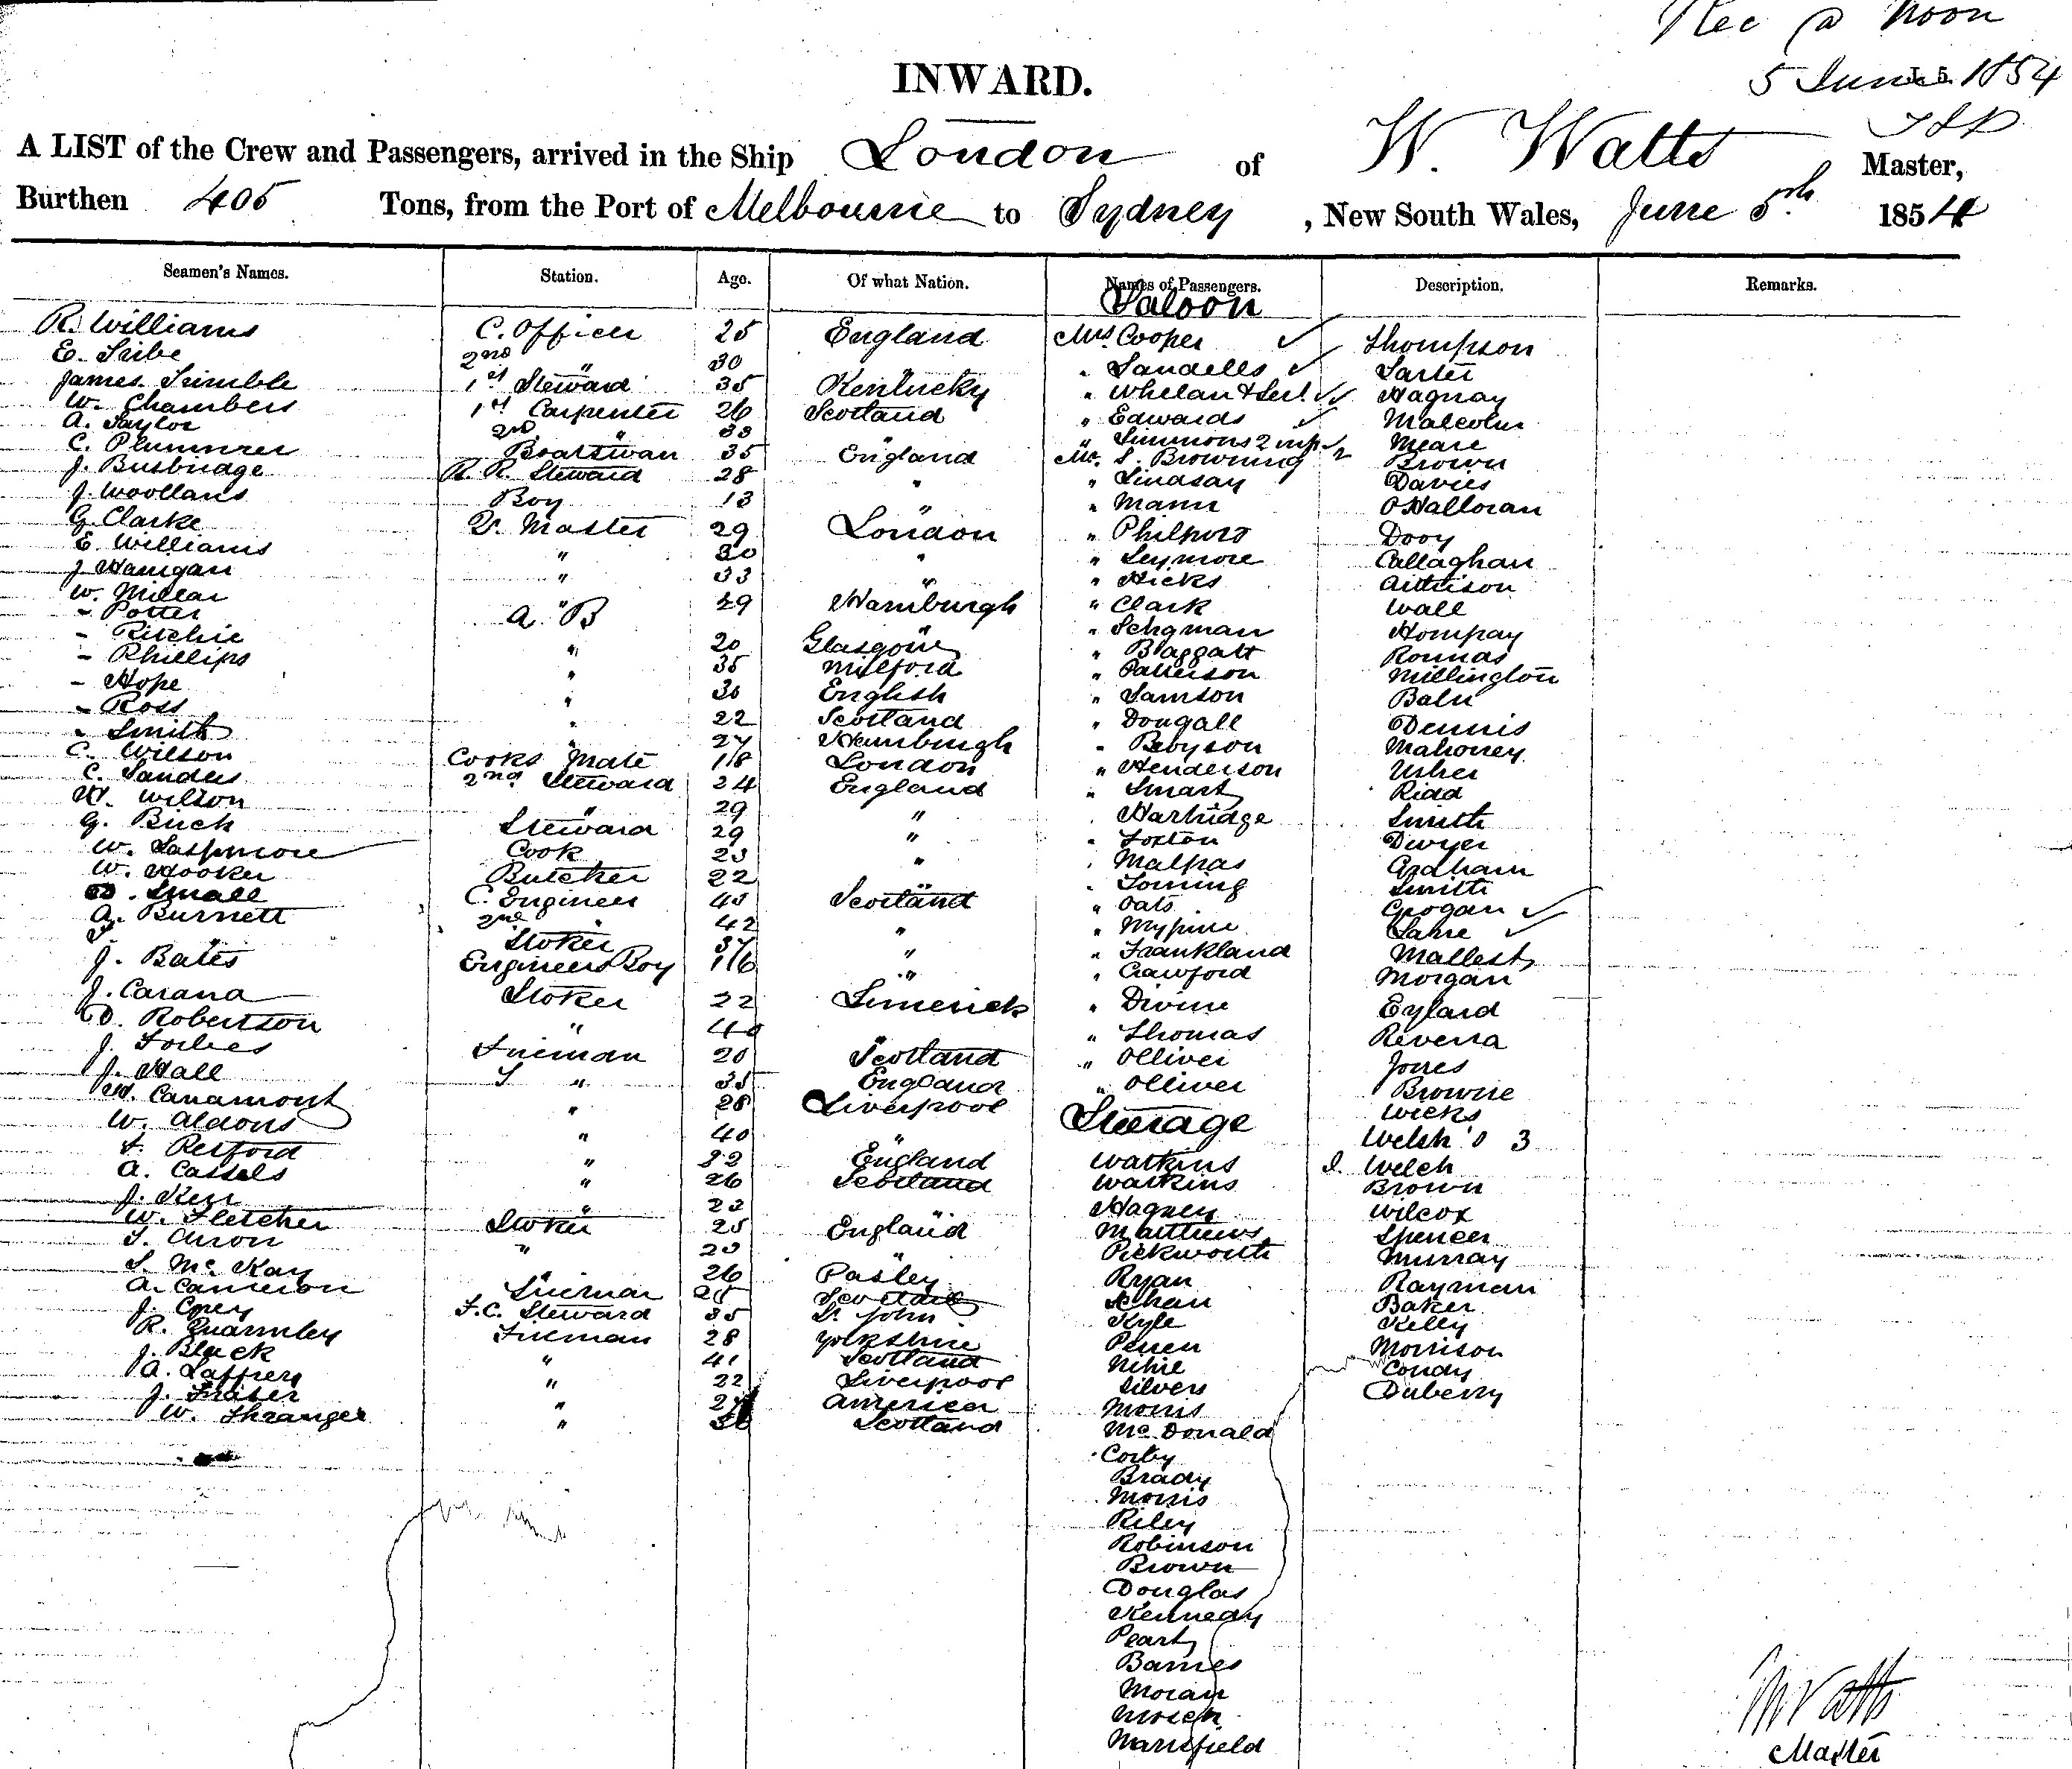 Rec @ Noon
5 June 1854
INWARD.
A LIST of the Crew and Passengers, arrived in the Ship London of W. Watts Master,
Burthen 405 Tons, from the Port of Melbourne to Sydney, New South Wales, June 5th 1854
Seamen's Names. Station. Age. Of what Nation. Names of Passengers. Description. Remarks.
Saloon
R. Williams C. Officer 25 England Mrs Cooper Thompson
E. Tribe 2nd " 30 " Sandells
James Trimble 1st Steward 35 Kentucky " Whelan & Servt. Hagnay
W. Chambers 1st Carpenter 26 Scotland " Edwards Malcolm
A. Taylor 2nd " 33 " " Simmons 2 inf Meare
C. Plummer Boatswan 35 England Mr. S. Browning Brown
J. Busbridge R. R. Steward 28 " " Lindsay Davies
J. Woollans Boy 13 " " Mann O'Halloran
G. Clarke Qr. Master 29 London " Philpots Dooy
E. Williams " 30 " " Seymore Callaghan
J. Hanigan " 33 " " Hicks Aitkison
W. Millar " 29 Hamburgh " Clark Wall
- Potter A. B " " Schgman Hompay
- Ritchie " 20 Glasgow " Blaggatt Rounas
- Phillips " 35 Milford " Patterson Millington
- Hope " 30 English " Samson
- Ross " 22 Scotland " Dougall Dennis
- Smith " 27 Hamburgh " Mahoney
C. Wilson Cooks Mate 18 London " Henderson Usher
C. Sanders 2nd Steward 24 England " Smart Ridd
H. Wilson " 29 " Harbidge Smith
G. Buck Steward 29 " " Foxton Dwyer
W. Cook 23 " " Malpas Graham
W. Hooker Butcher 22 " " Toming Smith
D. Small C. Engineer 43 Scotland " Oats Grogan
A. Burnett 2nd " 42 " "
" Stoker 37 " " Frankland Mallest
J. Bates Engineers Boy 16 " " Crawford Morgan
J. Carana Stoker 22 Limerick " Divine Eylard
D. Robertson " 40 " " Thomas Reverra
J. Forbes Fireman 20 Scotland " Olliver Jones
J. Hall " 35 England " Olliver Browne
H. Canamont " 28 Liverpool Steerage Wicks
W. Aldons " 40 " Welsh's 3
Retford " 32 England Watkins Welch
A. Cassels " 26 Scotland Watkins Brown
J. Kerr " 22 " Hagney Wilcox
W. Fletcher Stoker 25 England Matthews Spencer
" 23 " Pickworth Murray
S. Mc Kay " 26 Pasley Ryan Rayman
A. Cameron Fireman 25 Scotland Baker
J. Corey F.C. Steward 35 St. John Kyle Kelly
R. Quarmley Fireman 28 Yorkshire Morrison
J. Black " 41 Scotland Condy
A. Laffrey " 22 Liverpool Silvers Duberry
J. Fraser " America Morris
W. Shranger " Scotland Mc Donald
Corby
Brady
Morris
Riley
Robinson
Brown
Douglas
Kennedy
Peart
Barnes
Moran
Mansfield
W Watts
Master